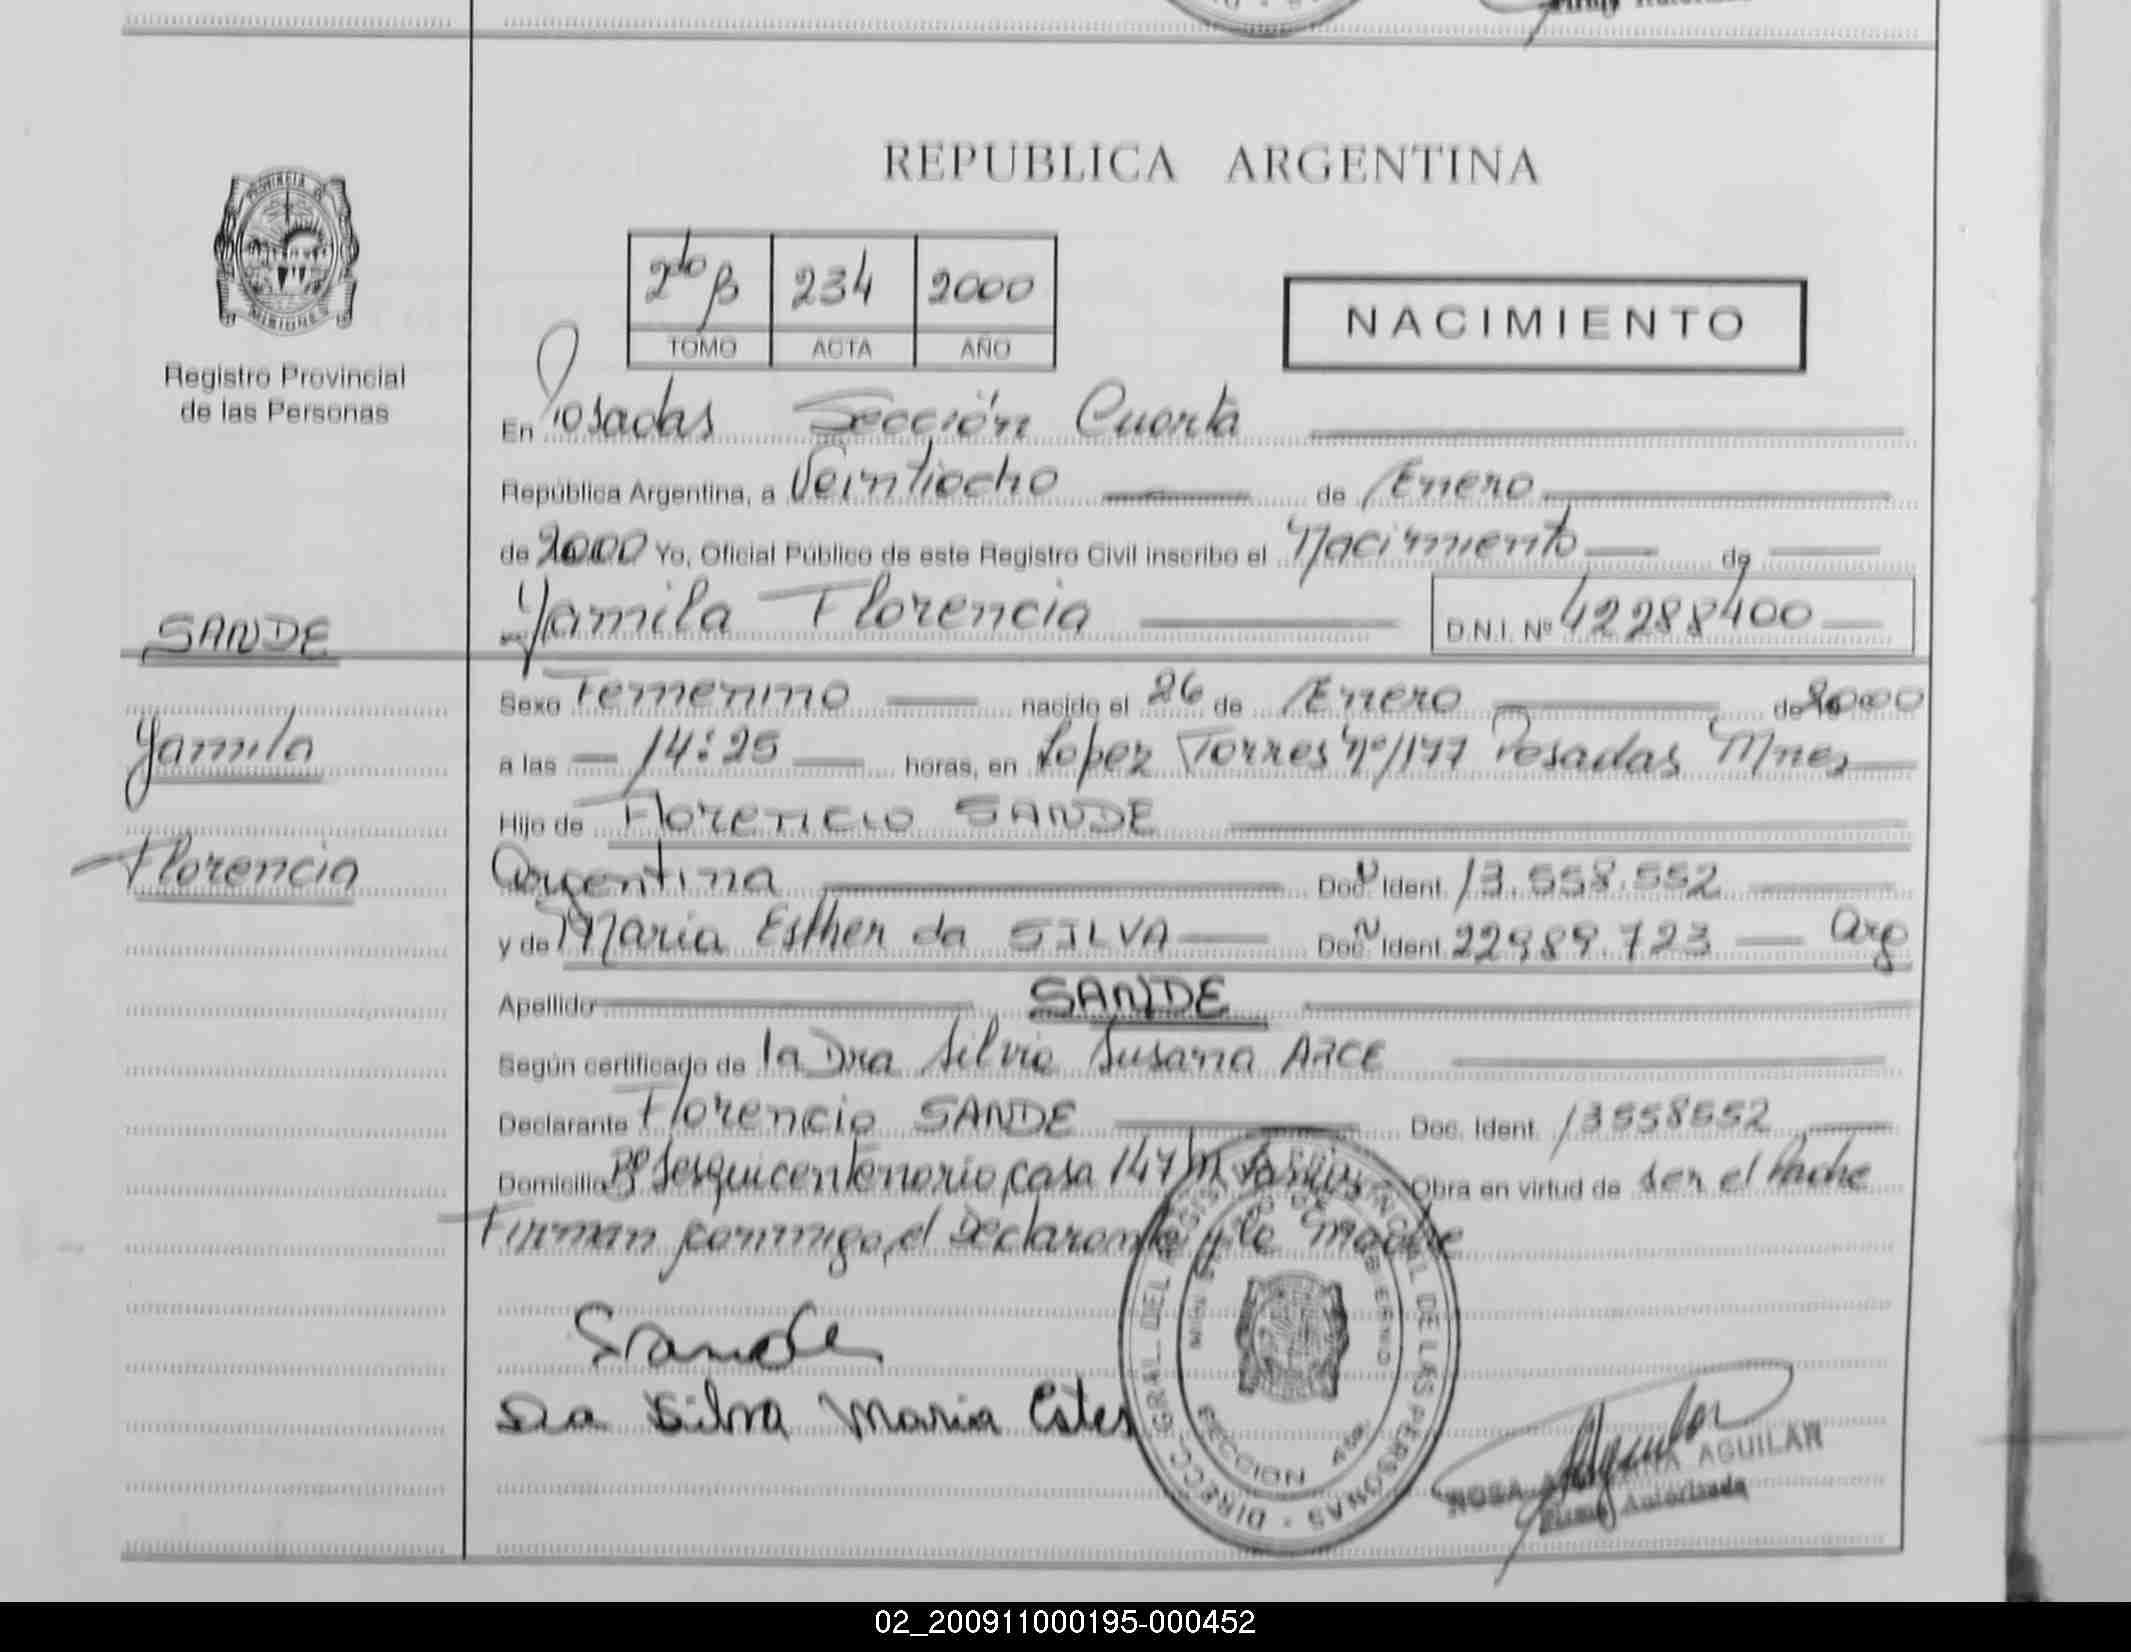 REPUBLICA ARGENTINA
PROVINCIA DE
MISIONES
Registro Provincial
de las Personas
2do B 234 2000
TOMO ACTA AÑO
NACIMIENTO
En Posadas Sección Cuarta
República Argentina, a Veintiocho de Enero
de 2000 Yo, Oficial Público de este Registro Civil inscribo el Nacimiento de
Yamila Florencia D.N.I. Nº 42288400
SANDE
Yamila
Florencia
Sexo Femenino nacido el 26 de Enero de 2000
a las 14:25 horas, en Lopez Torres nº 1177 Posadas Mnes
Hijo de Florencio SANDE
Argentina Doc. N Ident. 13.558.552
y de Maria Esther da SILVA Doc. N Ident. 22989.723 Arg
Apellido SANDE
Según certificado de la Dra Silvia Susana ARCE
Declarante Florencio SANDE Doc. Ident. 13558552
Domicilio Bº Sesquicentenario casa 147 Obra en virtud de ser el Padre
Firman conmigo, el Declarante y la madre
Sande
Da Silva Maria Ester
DIRECC. GRAL. DEL REGISTRO PROVINCIAL DE LAS PERSONAS
Aguilar
ROSA AGUILAR
Firma Autorizada
02_200911000195-000452